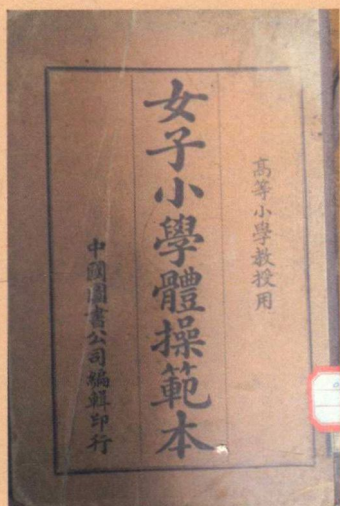 高等小學教授用
女子小學體操範本
中國圖書公司編輯印行